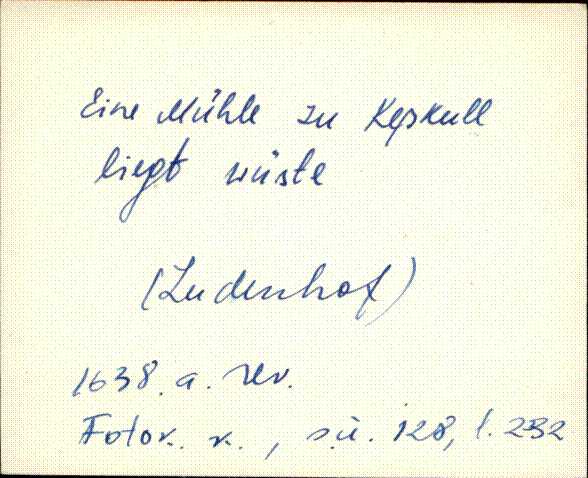 Eine Mühle zu Kepskull
liegt wüste
(Ludenhof)
1638. a. rev.
Fotok. k., s.ü. 128, l. 232